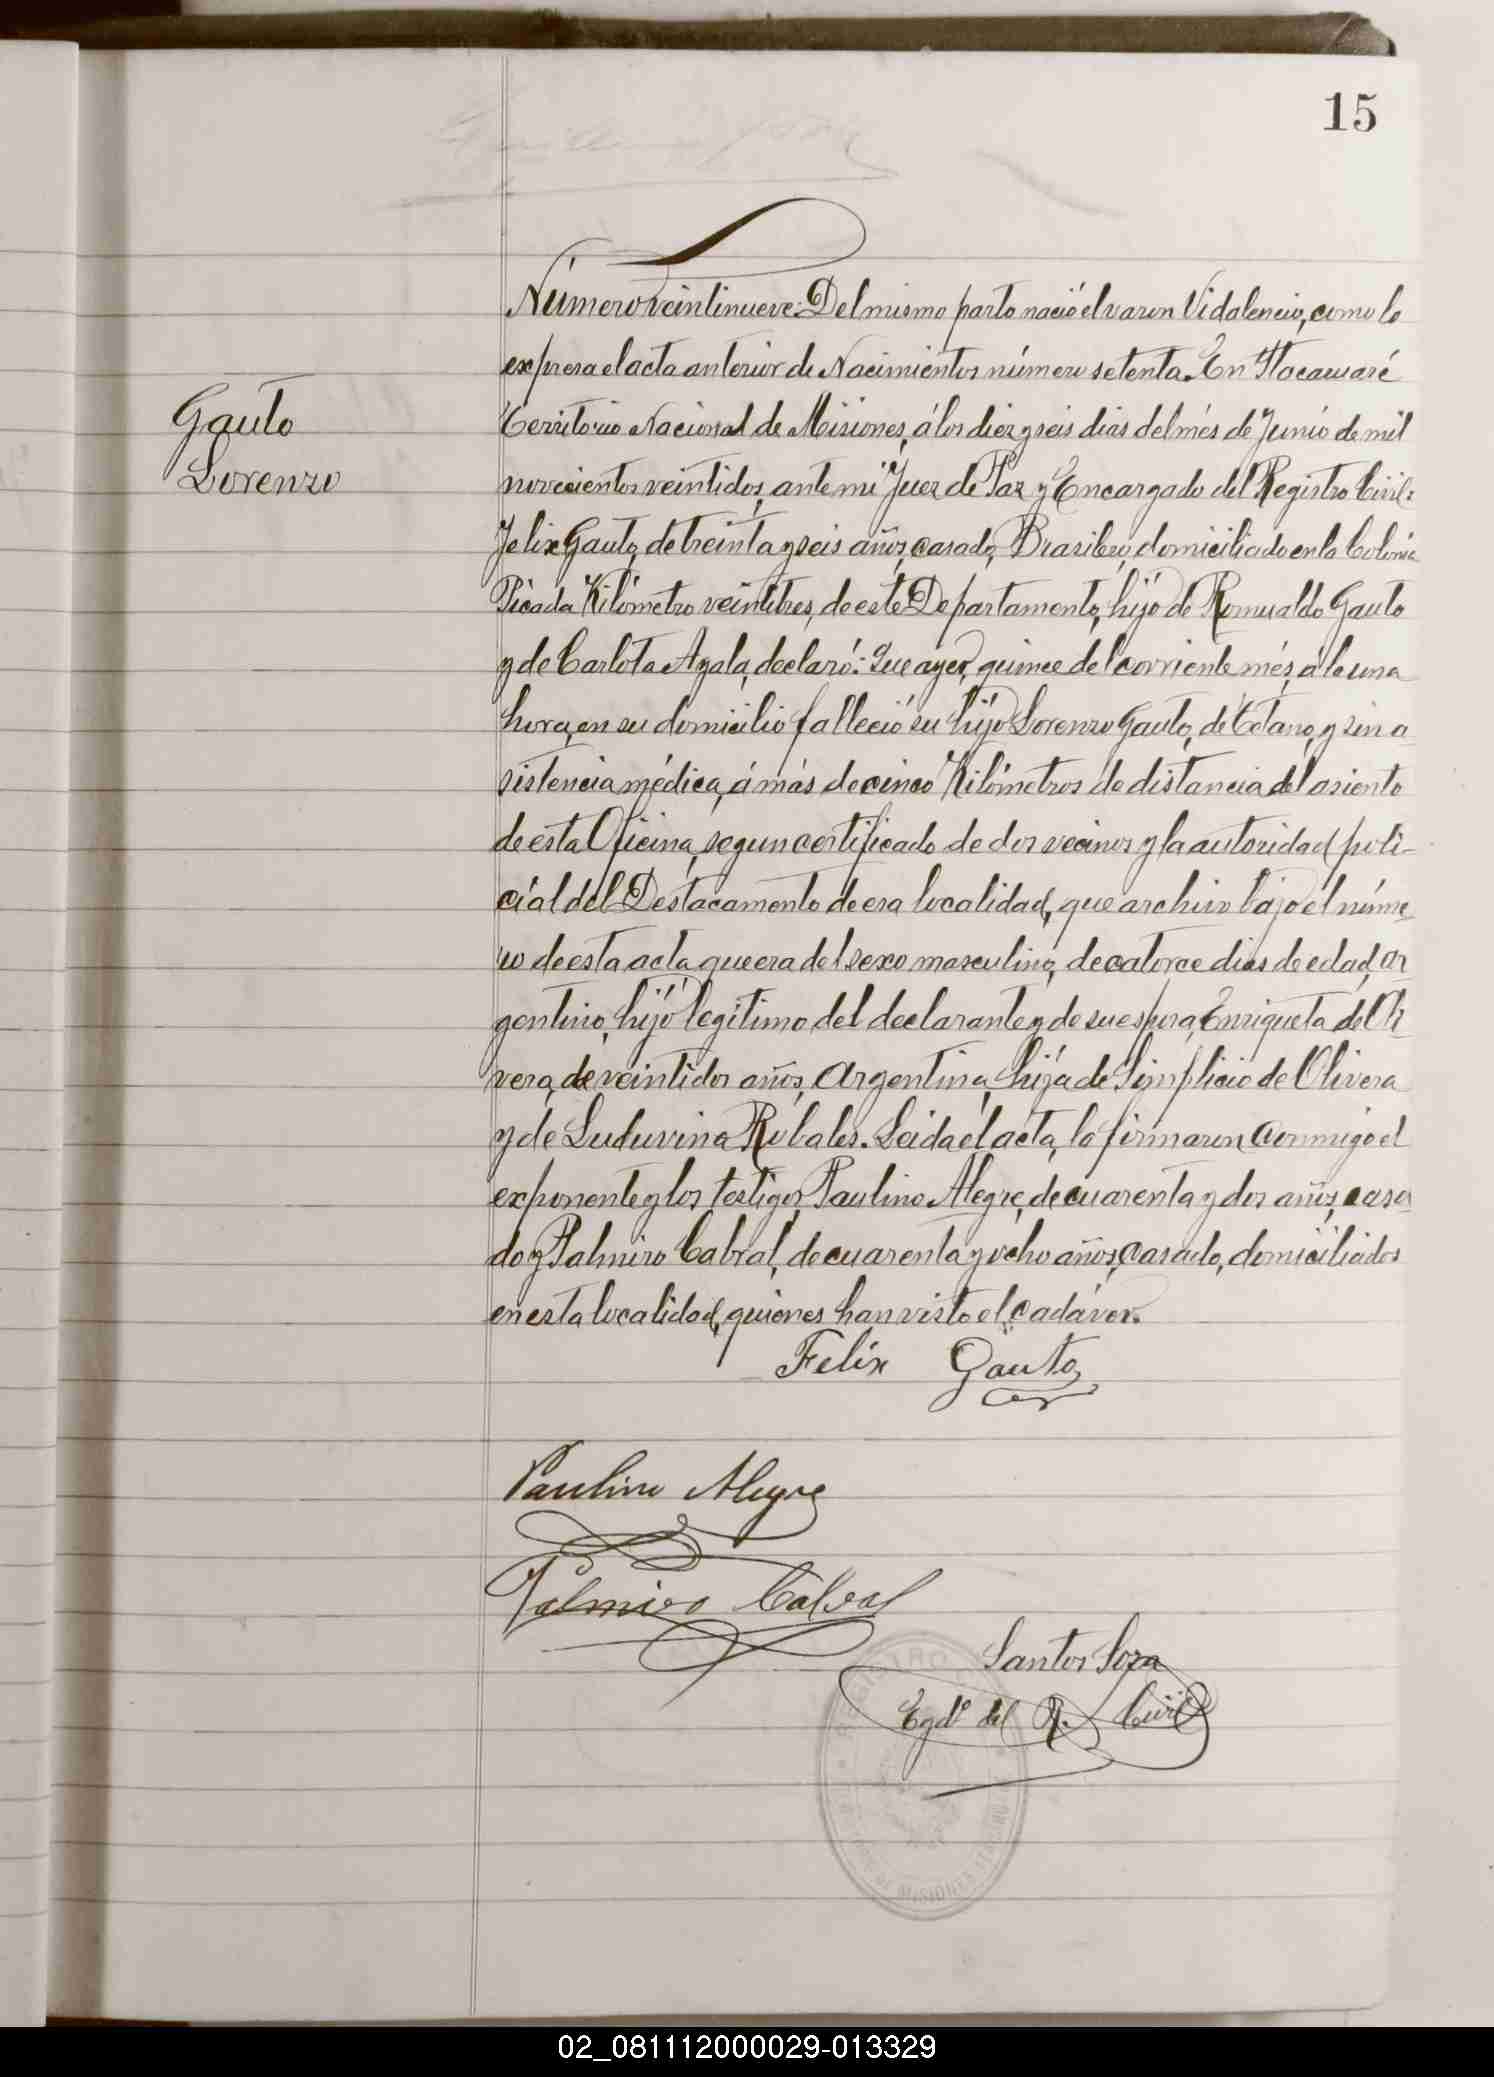 15
Gauto
Lorenzo
Número veintinueve: Del mismo parto nació el varon Vidalencio, como lo
expresa el acta anterior de Nacimientos número setenta. En Itacaruaré
Territorio Nacional de Misiones, á los diez y seis dias del més de Junio de mil
novecientos veintidos, ante mi Juez de Paz y Encargado del Registro Civil:
Felix Gauto, de treinta y seis años, casado, Brasilero, domiciliado en la Colonia
Picada Kilómetro veintitres, de este Departamento, hijo de Romualdo Gauto
y de Carlota Ayala, declaró: Que ayer, quince del corriente més, á la una
hora, en su domicilio falleció su hijo Lorenzo Gauto, de Tétano, y sin a
sistencia médica, á más de cinco Kilómetros de distancia del asiento
de esta Oficina, segun certificado de dos vecinos y la autoridad poli-
cial del Destacamento de esa localidad, que archivo bajo el núme
ro de esta acta, que era del sexo masculino, de catorce dias de edad, ar
gentino, hijo legitimo del declarante y de su esposa, Enriqueta de Oli
vera, de veintidos años, Argentina, hija de Simplicio de Olivera
y de Luduvina Robales. Leida el acta, la firmaron conmigo el
exponente y los testigos, Paulino Alegre, de cuarenta y dos años, casa
do y Palmiro Cabral, de cuarenta y ocho años, casado, domiciliados
en esta localidad, quienes han visto el cadáver.
Felix Gauto
Paulino Alegre
Palmiro Cabral
Santos Soza
Egdo del R. Civil
REGISTRO
DE MISIONES
02_081112000029-013329